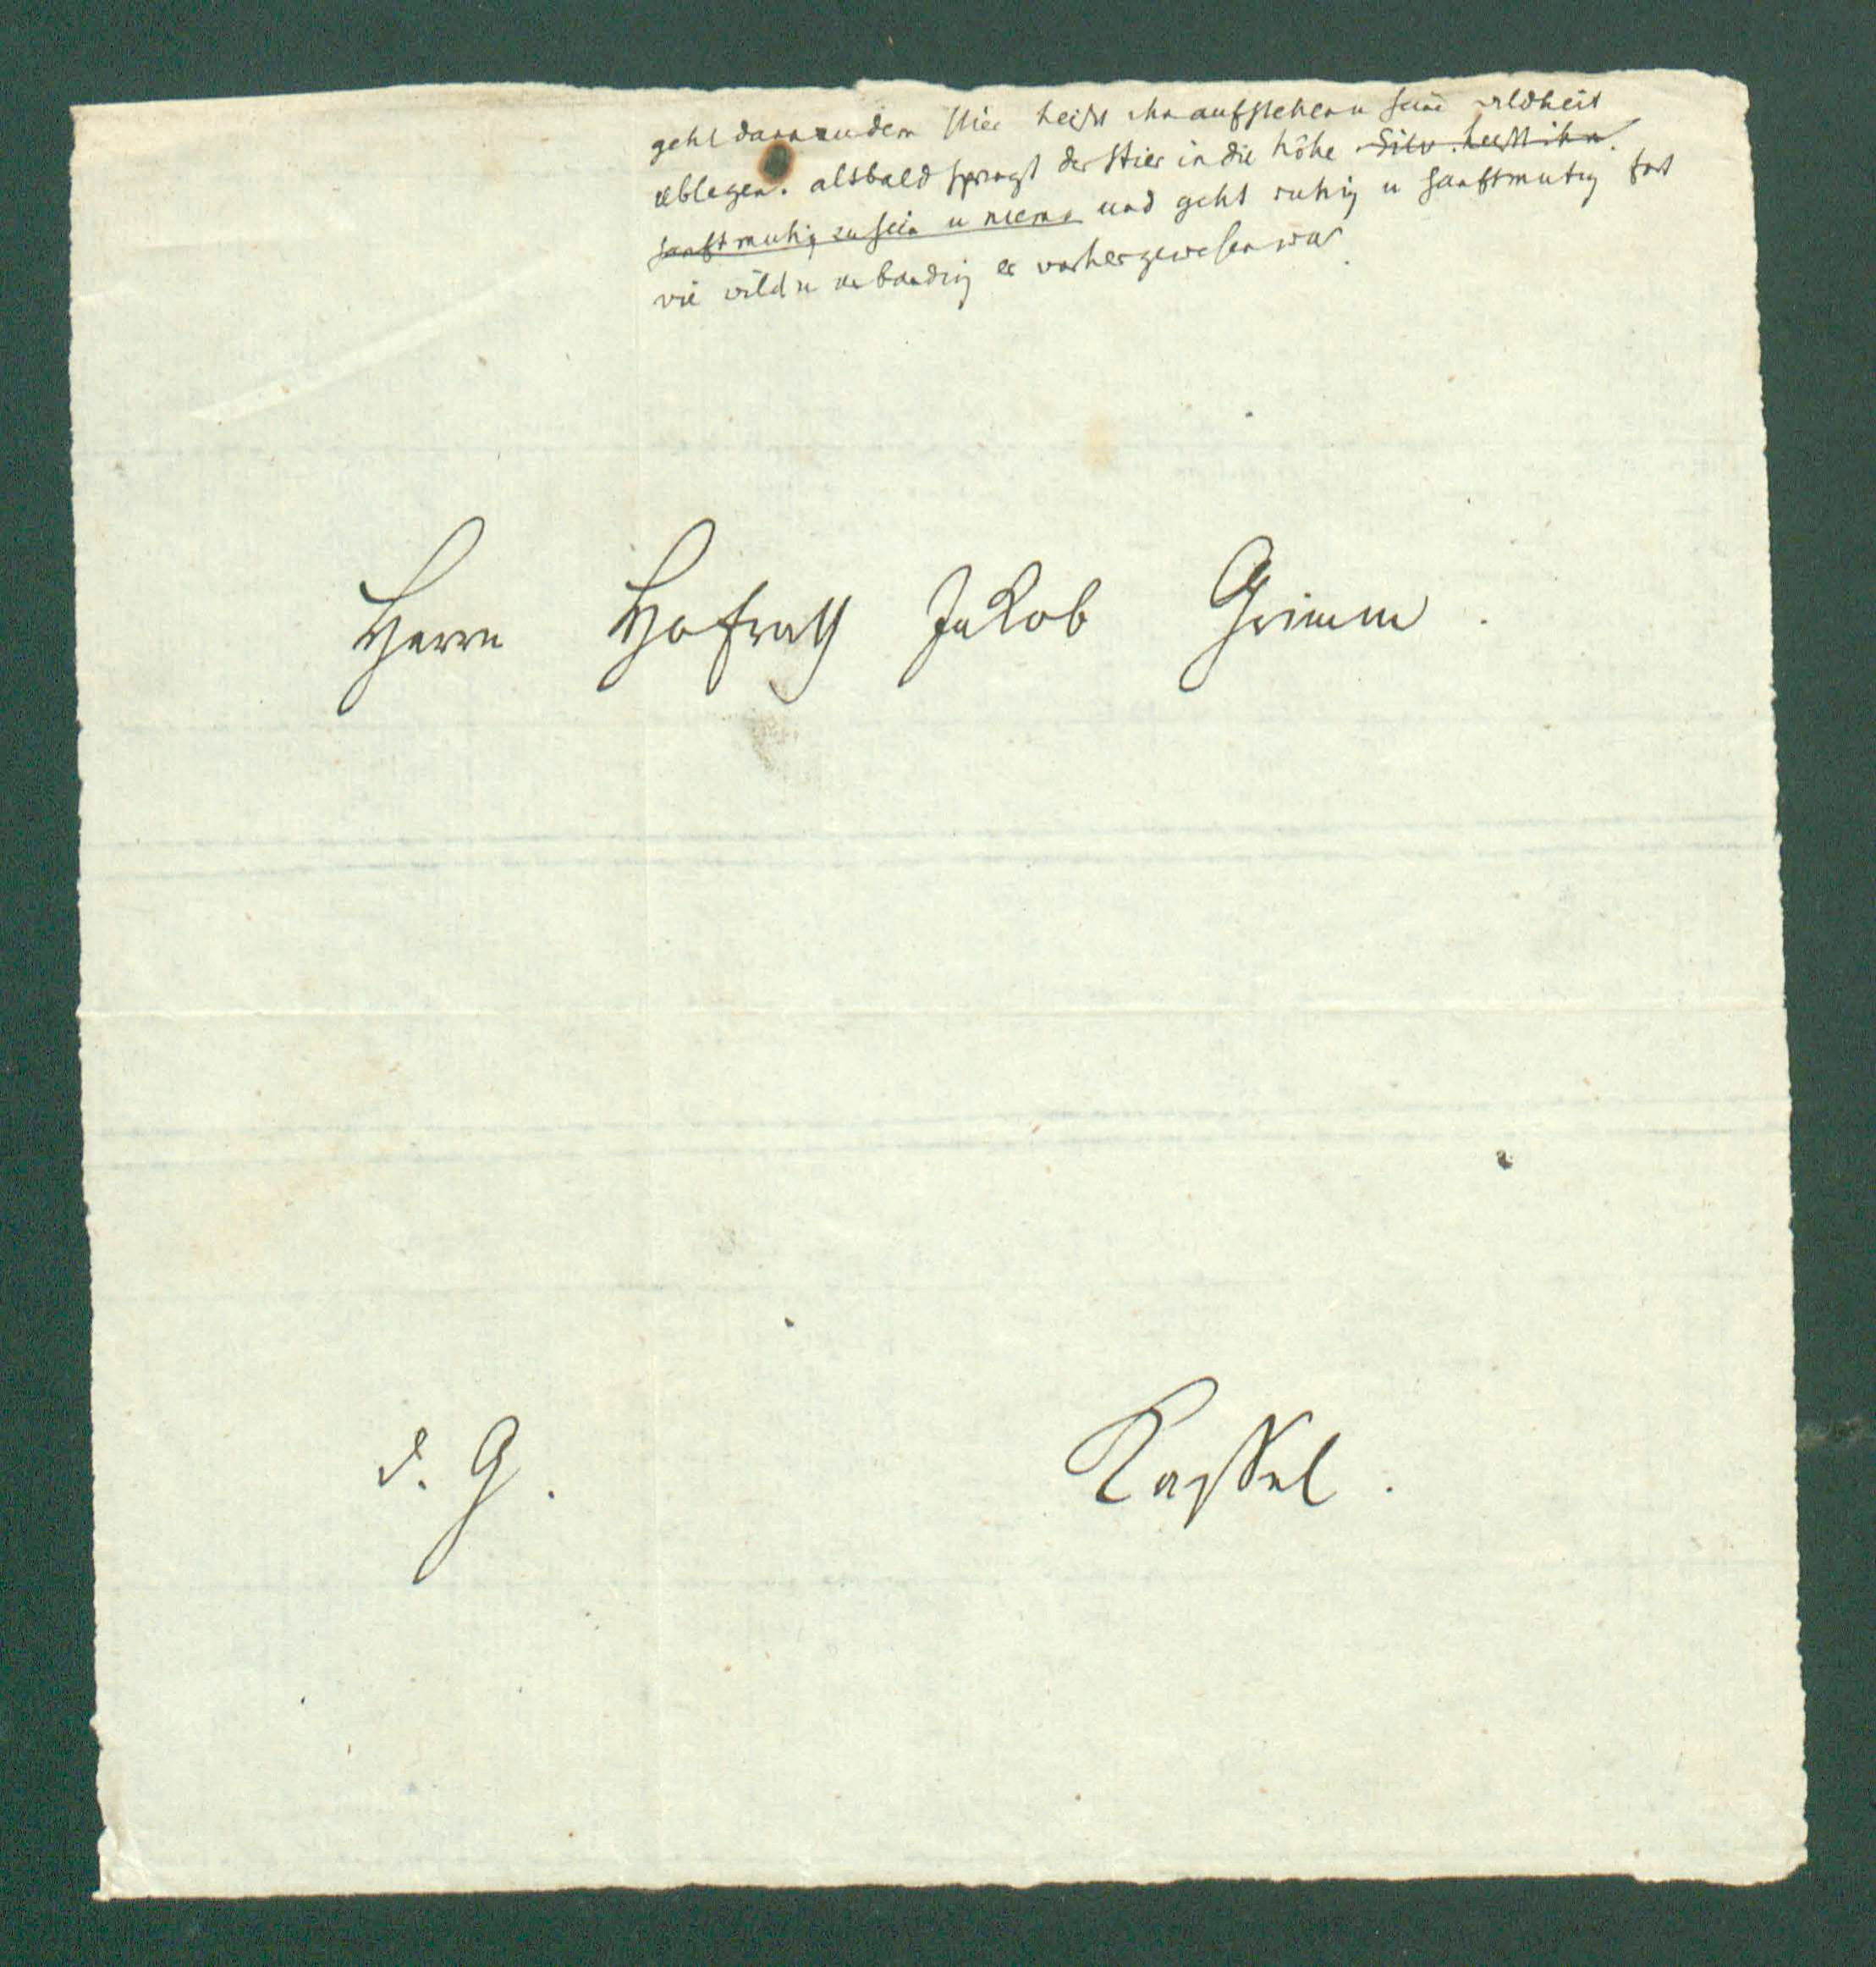 geht dann zu dem Stier heißt ihn aufstehen u seine wildheit
ablegen. alsbald springt der Stier in die höhe Silv. heißt ihn
sanftmutig zu sein u niema und geht ruhig u sanftmutig fort
wie wild u unbandig er vorher gewesen war.
Herrn Hofrath Jakob Grimm.
d. G. Kassel.